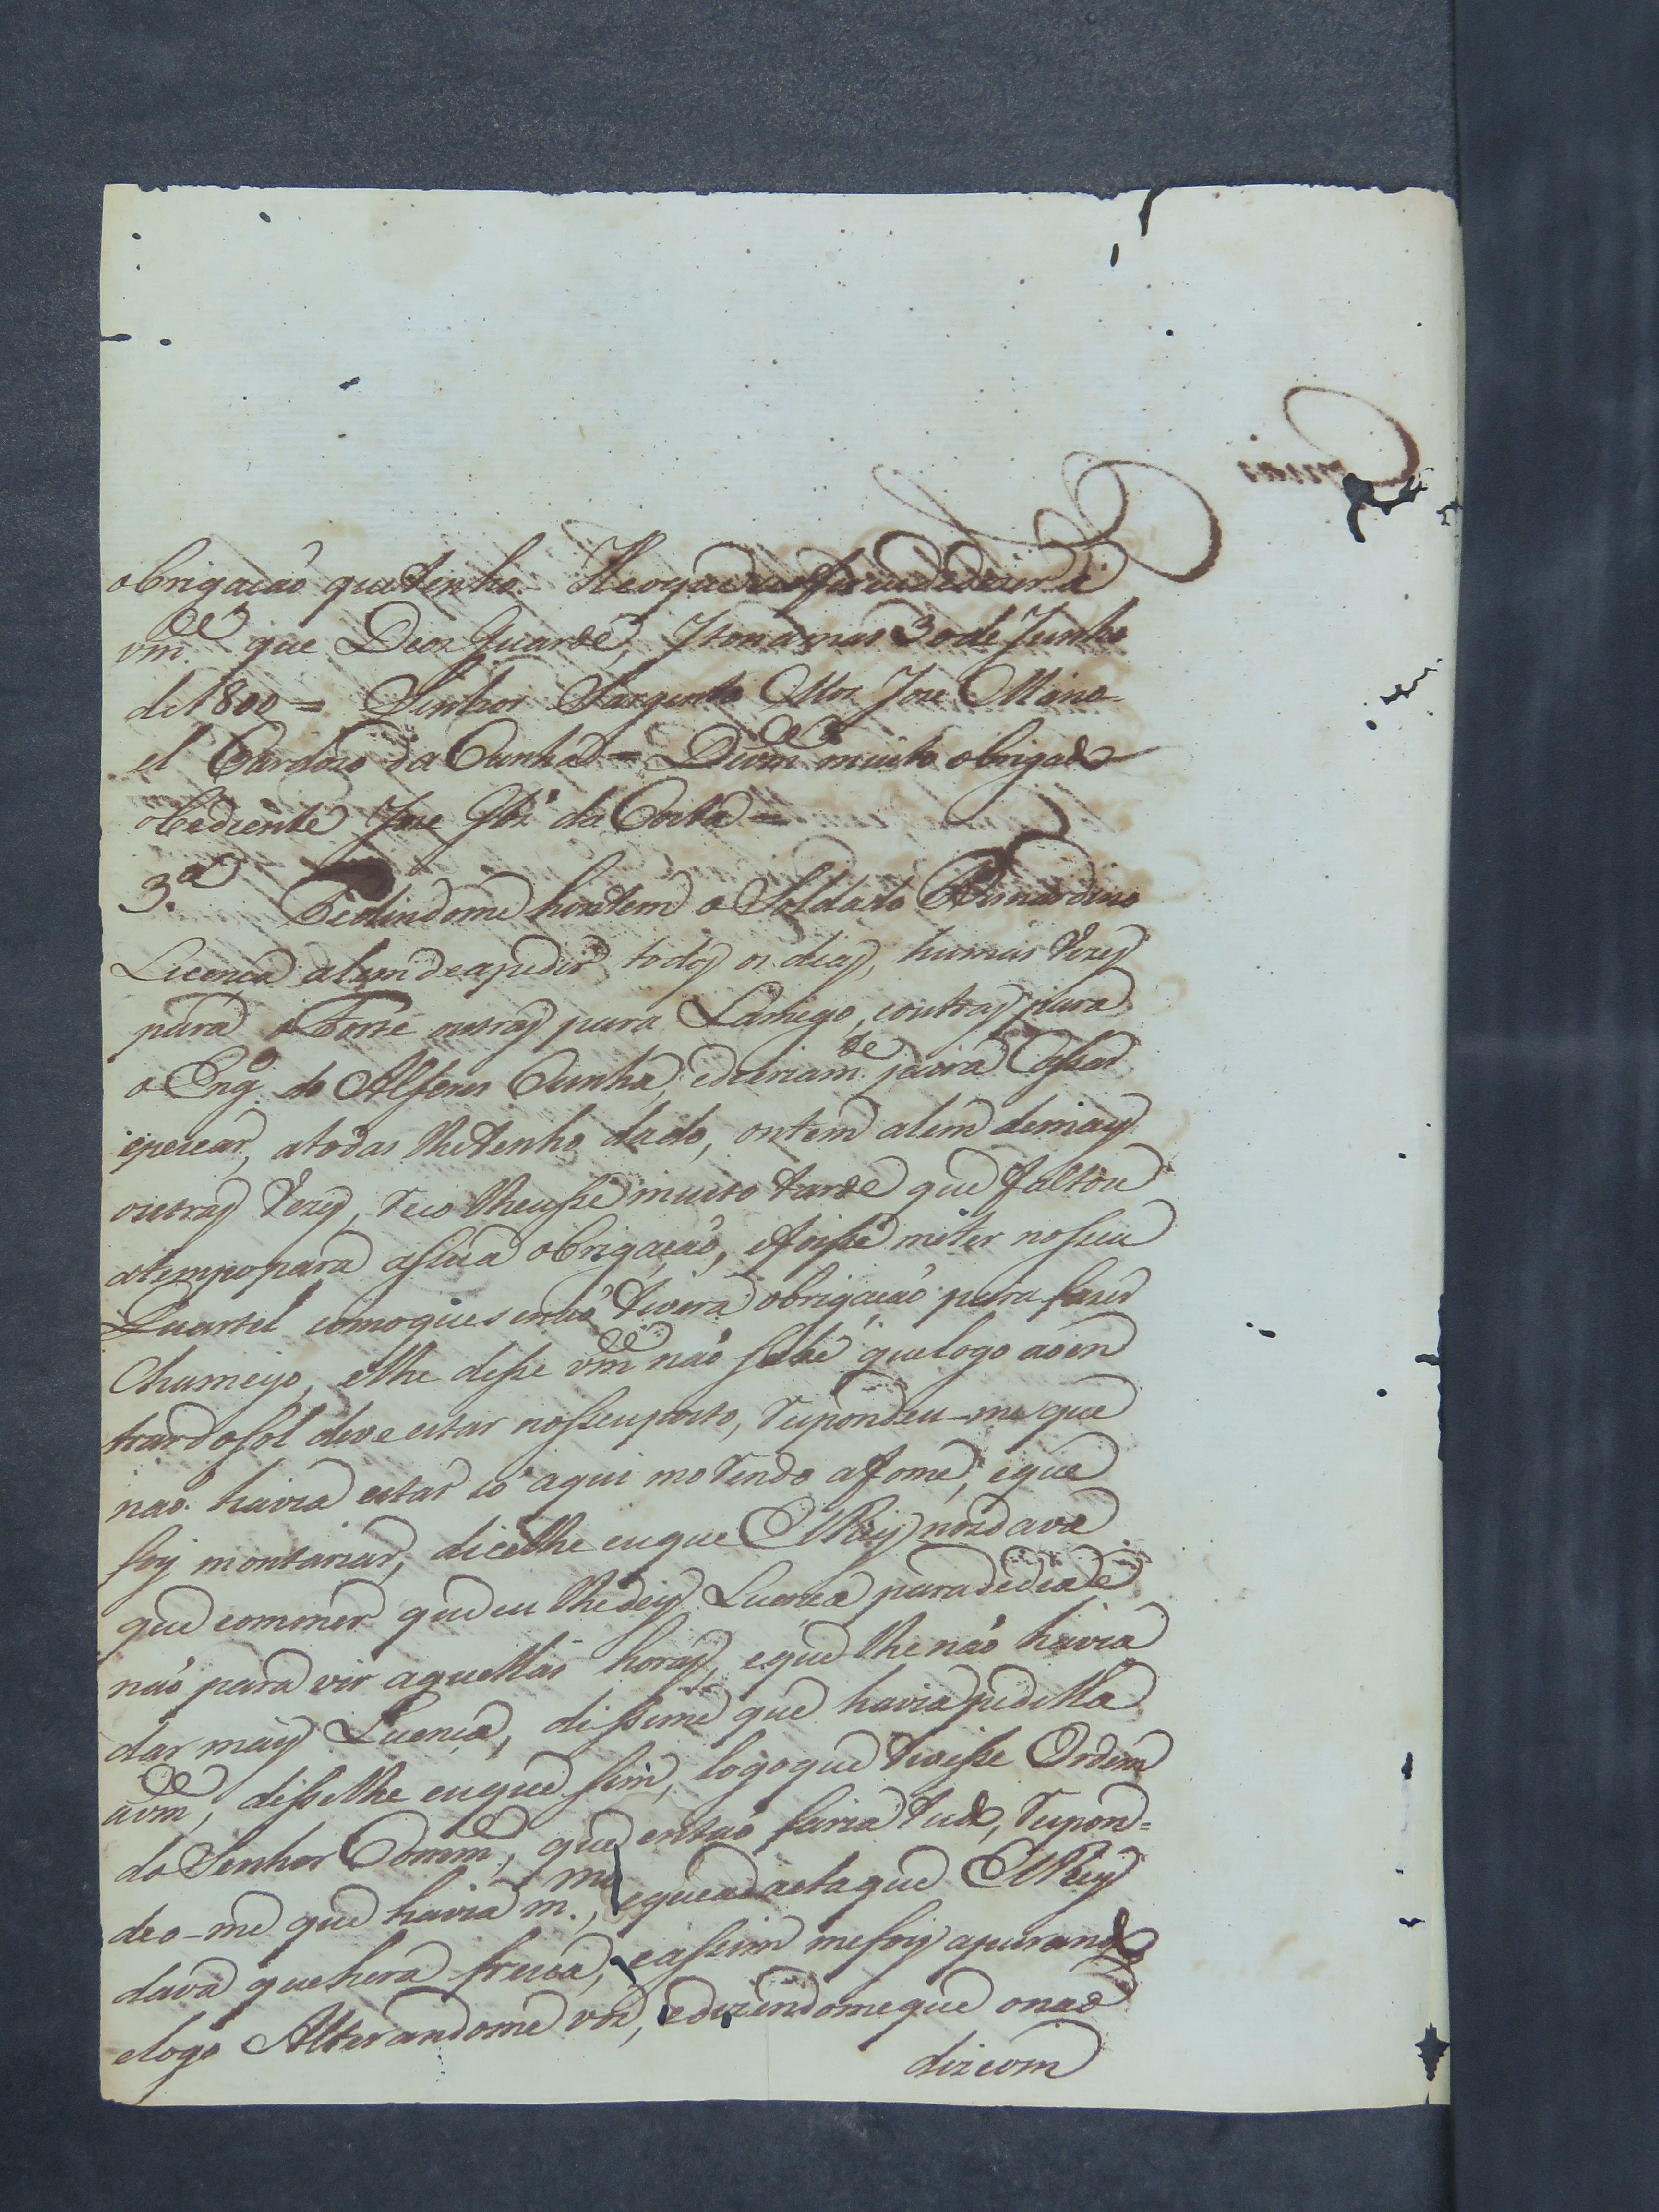 obrigacaó que tenho. He o que se me offerece dizer a
vm.ce que Deos Guarde, Itonamas 30 de Junho
de 1800 = Senhor Sargento Mor Jose Mano-
el Cardozo da Cunha = De vm.ce muito obrigado
obediente Jose Glz' da Costa =
3.a Pedindome hontem o Soldado Bernardino
Licenca alem de a pedir todos os dias, humas vezes
para a Torre outras para Lamego, e outras para
o Eng.o do Alferes Cunha, e diariam.te para Cassar
e pescar, a todas lhe tenho dado, ontem alem de mais
outras vezes, recolheusse muito tarde que faltou
a tempo para a sua obrigação, e foisse meter no seu
Quartel como que se naó tivera obrigacaó para fazer
Chumeyo, e lhe disse vm.ce naó sabe que logo ao en
trar do sol deve estar no seu posto, respondeu-me que
naó havia estar só aqui morendo a fome, e que
foy montariar, dicelhe eu que ElRey nos dava
que commer que eu lhe dey Licenca para de dia e
naó para vir aquellas horas, e que lhe naó havia
dar mais Licenca, dissime que havia pedilla
a vm.ce, disselhe eu que sim, logo que tivesse Ordem
do Senhor Comm.e, que entaó faria tudo, respon=
deo-me que havia m.mo, e que a dacta que ElRey
dava que hera fresca, e assim me foy apurando
e logo Alterandome voz, e dizendome que o naó
dizcom
Copias